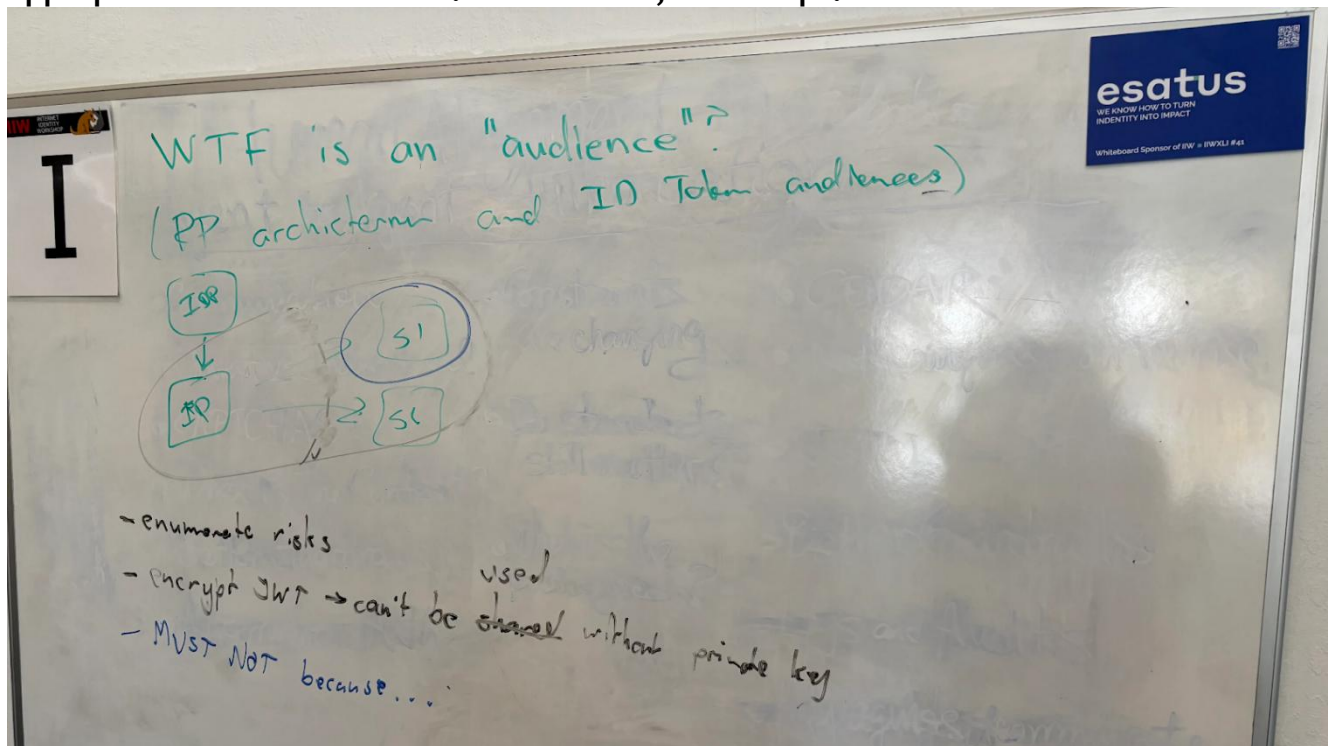 IIW INTERNET IDENTITY WORKSHOP
I
esatus
WE KNOW HOW TO TURN
INDENTITY INTO IMPACT
Whiteboard Sponsor of IIW = IIWXLI #41
WTF is an "audience"?
(RP and ID Token audiences)
S1
- enumerate risks
- encrypt JWT → can't be shared used without private key
- MUST NOT because...